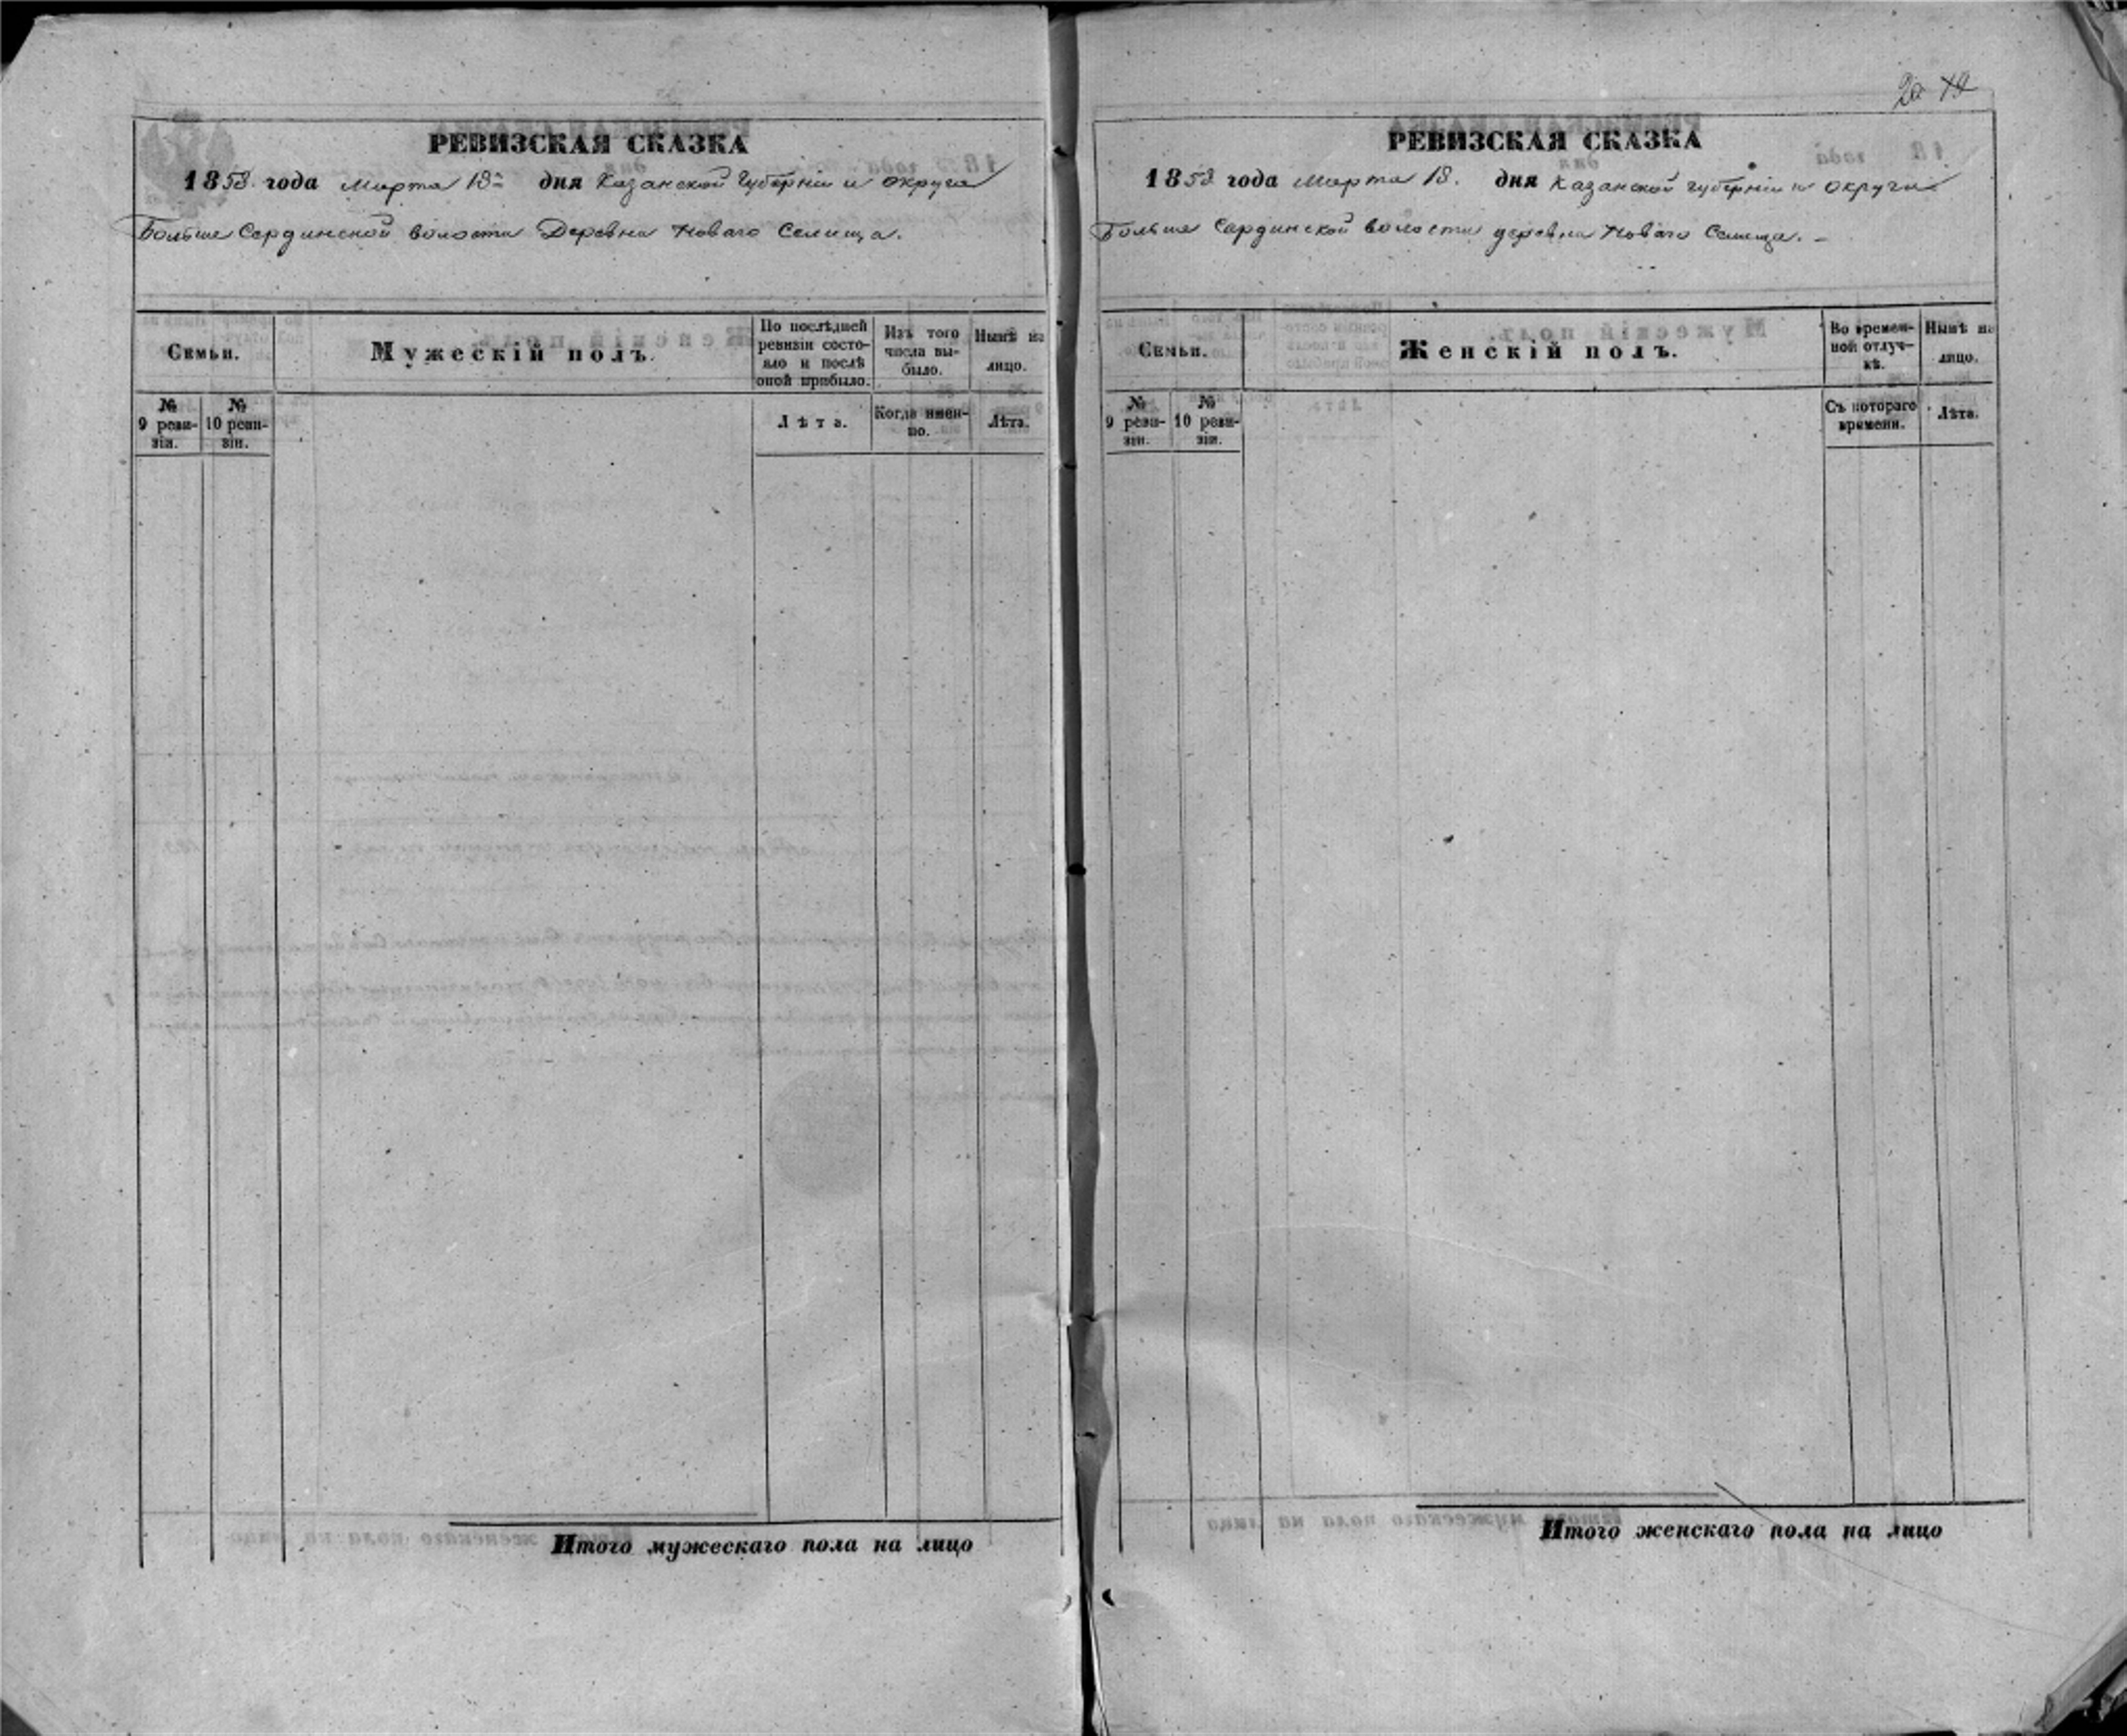 РЕВИЗСКАЯ СКАЗКА
1858 года Марта 18 дня Казанской Губернiи и округа
Больше Сердинской волости Деревна Новаго Селища.
Семьи.
Мужескiй полъ.
По послѣдней ревизiи состояло и послѣ оной прибыло.
Изъ того числа выбыло.
Нынѣ на лицо.
№ 9 ревизiи.
№ 10 ревизiи.
Лѣта.
Когда именно.
Лѣта.
Итого мужескаго пола на лицо
РЕВИЗСКАЯ СКАЗКА
1858 года Марта 18. дня Казанской губернiи и округи
Больше Сердинской волости деревна Новаго Селища. –
Семьи.
Женскiй полъ.
Во временной отлучкѣ.
Нынѣ на лицо.
№ 9 ревизiи.
№ 10 ревизiи.
Съ котораго времени.
Лѣта.
Итого женскаго пола на лицо